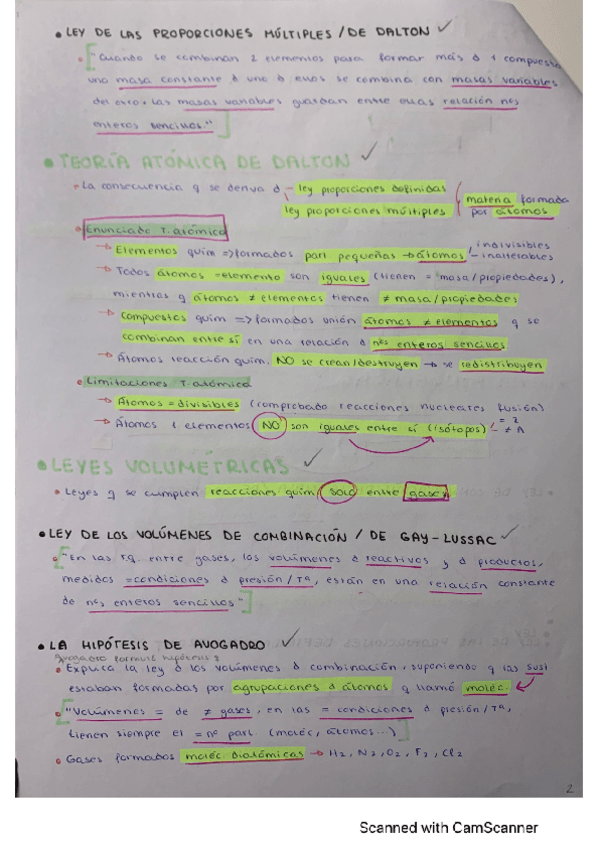 • LEY DE LAS PROPORCIONES MÚLTIPLES / DE DALTON ✓
• [ "Cuando se combinan 2 elementos para formar más d 1 compuesto
una masa constante d uno d ellos se combina con masas variables
del otro. Las masas variables guardan entre ellas relación nos
enteros sencillos." ]
• TEORÍA ATÓMICA DE DALTON ✓
• La consecuencia q se deriva d – ley proporciones definidas
ley proporciones múltiples
materia formada
por átomos
• Enunciado T. atómica
→ Elementos quím => formados part pequeñas → átomos / indivisibles
– inalterables
→ Todos átomos = elemento son iguales (tienen = masa/propiedades),
mientras q átomos ≠ elementos tienen ≠ masa/propiedades
→ Compuestos quím => formados unión átomos ≠ elementos q se
combinan entre sí en una relación d nos enteros sencillos
→ Átomos reacción quím. NO se crean/destruyen → se redistribuyen
• Limitaciones T. atómica
→ Átomos = divisibles (comprobado reacciones nucleares fusión)
→ Átomos 1 elementos NO son iguales entre sí (isótopos) – = Z
– ≠ A
• LEYES VOLUMÉTRICAS ✓
• Leyes q se cumplen reacciones quím SOLO entre gases
• LEY DE LOS VOLÚMENES DE COMBINACIÓN / DE GAY-LUSSAC ✓
• [ "En las rq. entre gases, los volúmenes d reactivos y d productos,
medidos = condiciones d presión/Tª, están en una relación constante
de nos enteros sencillos" ]
• LA HIPÓTESIS DE AVOGADRO ✓
Avogadro formuló hipótesis
• Explica la ley d los volúmenes d combinación, suponiendo q las sust
estaban formadas por agrupaciones d átomos q llamó moléc.
• [ "Volúmenes = de ≠ gases, en las = condiciones d presión/Tª,
tienen siempre el = nº part. (moléc, átomos...) ]
• Gases formados moléc diatómicas → H2, N2, O2, F2, Cl2
2
Scanned with CamScanner